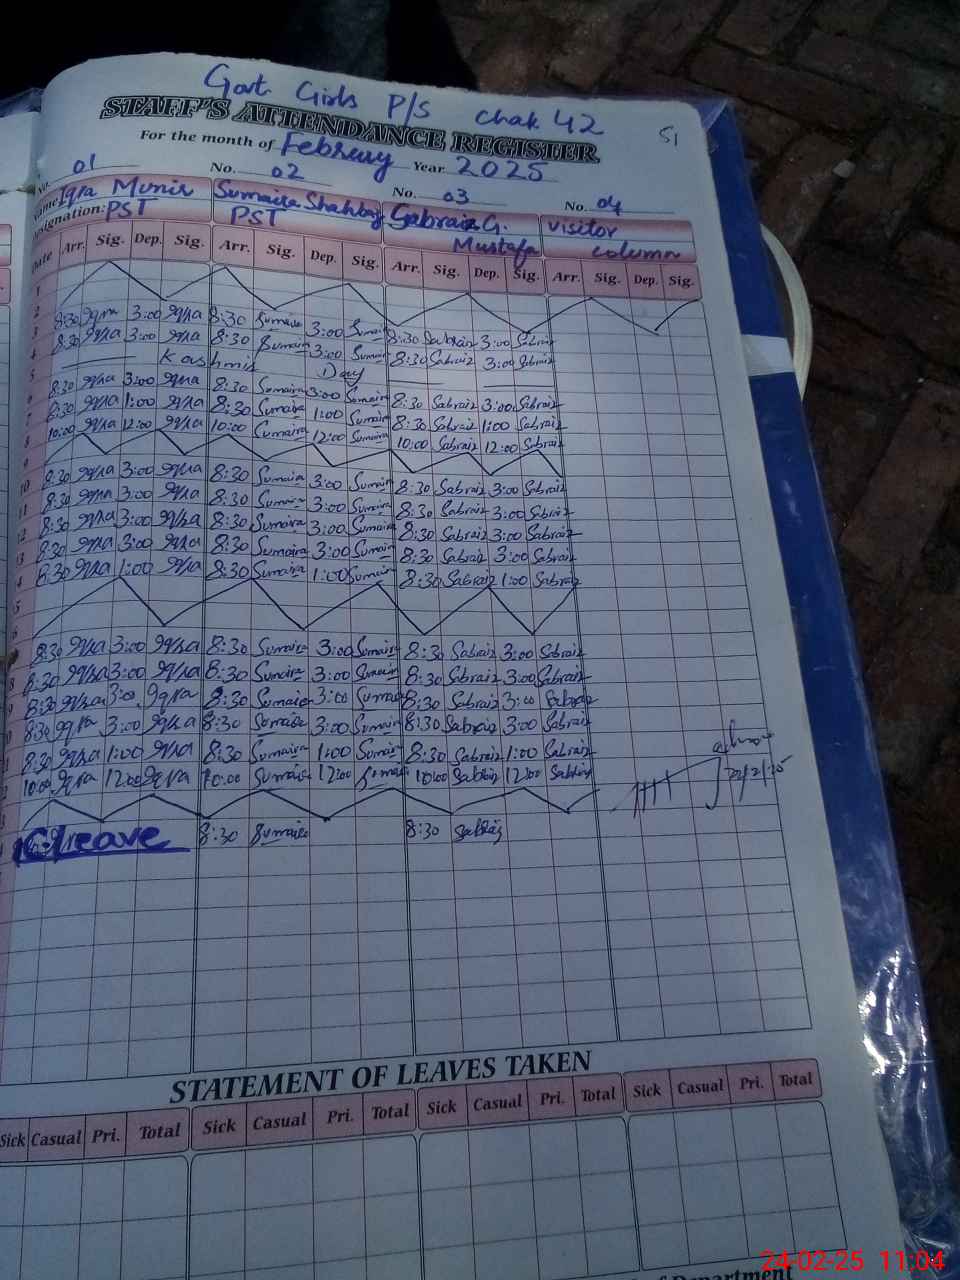 Govt. Girls P/S chak 42
STAFF'S ATTENDANCE REGISTER 51
For the month of Februay Year 2025
No. 01 No. 02 No. 03 No. 04
Name Iqra Munir Sumaira Shahbaz Sabraiz G. Mustafa visitor column
Designation: PST PST
Date Arr. Sig. Dep. Sig. Arr. Sig. Dep. Sig. Arr. Sig. Dep. Sig. Arr. Sig. Dep. Sig.
1
2
3 8:30 Iqra 3:00 Iqra 8:30 Sumaira 3:00 Sumaira 8:30 Sabraiz 3:00 Sabraiz
4 8:30 Iqra 3:00 Iqra 8:30 Sumaira 3:00 Sumaira 8:30 Sabraiz 3:00 Sabraiz
5 Kashmir Day
6 8:30 Iqra 3:00 Iqra 8:30 Sumaira 3:00 Sumaira 8:30 Sabraiz 3:00 Sabraiz
7 8:30 Iqra 1:00 Iqra 8:30 Sumaira 1:00 Sumaira 8:30 Sabraiz 1:00 Sabraiz
8 10:00 Iqra 12:00 Iqra 10:00 Sumaira 12:00 Sumaira 10:00 Sabraiz 12:00 Sabraiz
9
10 8:30 Iqra 3:00 Iqra 8:30 Sumaira 3:00 Sumaira 8:30 Sabraiz 3:00 Sabraiz
11 8:30 Iqra 3:00 Iqra 8:30 Sumaira 3:00 Sumaira 8:30 Sabraiz 3:00 Sabraiz
12 8:30 Iqra 3:00 Iqra 8:30 Sumaira 3:00 Sumaira 8:30 Sabraiz 3:00 Sabraiz
13 8:30 Iqra 3:00 Iqra 8:30 Sumaira 3:00 Sumaira 8:30 Sabraiz 3:00 Sabraiz
4 8:30 Iqra 1:00 Iqra 8:30 Sumaira 1:00 Sumaira 8:30 Sabraiz 1:00 Sabraiz
5
6
8:30 Iqra 3:00 Iqra 8:30 Sumaira 3:00 Sumaira 8:30 Sabraiz 3:00 Sabraiz
8 8:30 Iqra 3:00 Iqra 8:30 Sumaira 3:00 Sumaira 8:30 Sabraiz 3:00 Sabraiz
9 8:30 Iqra 3:00 Iqra 8:30 Sumaira 3:00 Sumaira 8:30 Sabraiz 3:00 Sabraiz
0 8:30 Iqra 3:00 Iqra 8:30 Sumaira 3:00 Sumaira 8:30 Sabraiz 3:00 Sabraiz
1 8:30 Iqra 1:00 Iqra 8:30 Sumaira 1:00 Sumaira 8:30 Sabraiz 1:00 Sabraiz
2 10:00 Iqra 12:00 Iqra 10:00 Sumaira 12:00 Sumaira 10:00 Sabraiz 12:00 Sabraiz 22/2/25
3
C/leave 8:30 Sumaira 8:30 Sabraiz
STATEMENT OF LEAVES TAKEN
Sick Casual Pri. Total Sick Casual Pri. Total Sick Casual Pri. Total Sick Casual Pri. Total
of Department
24-02-25 11:04